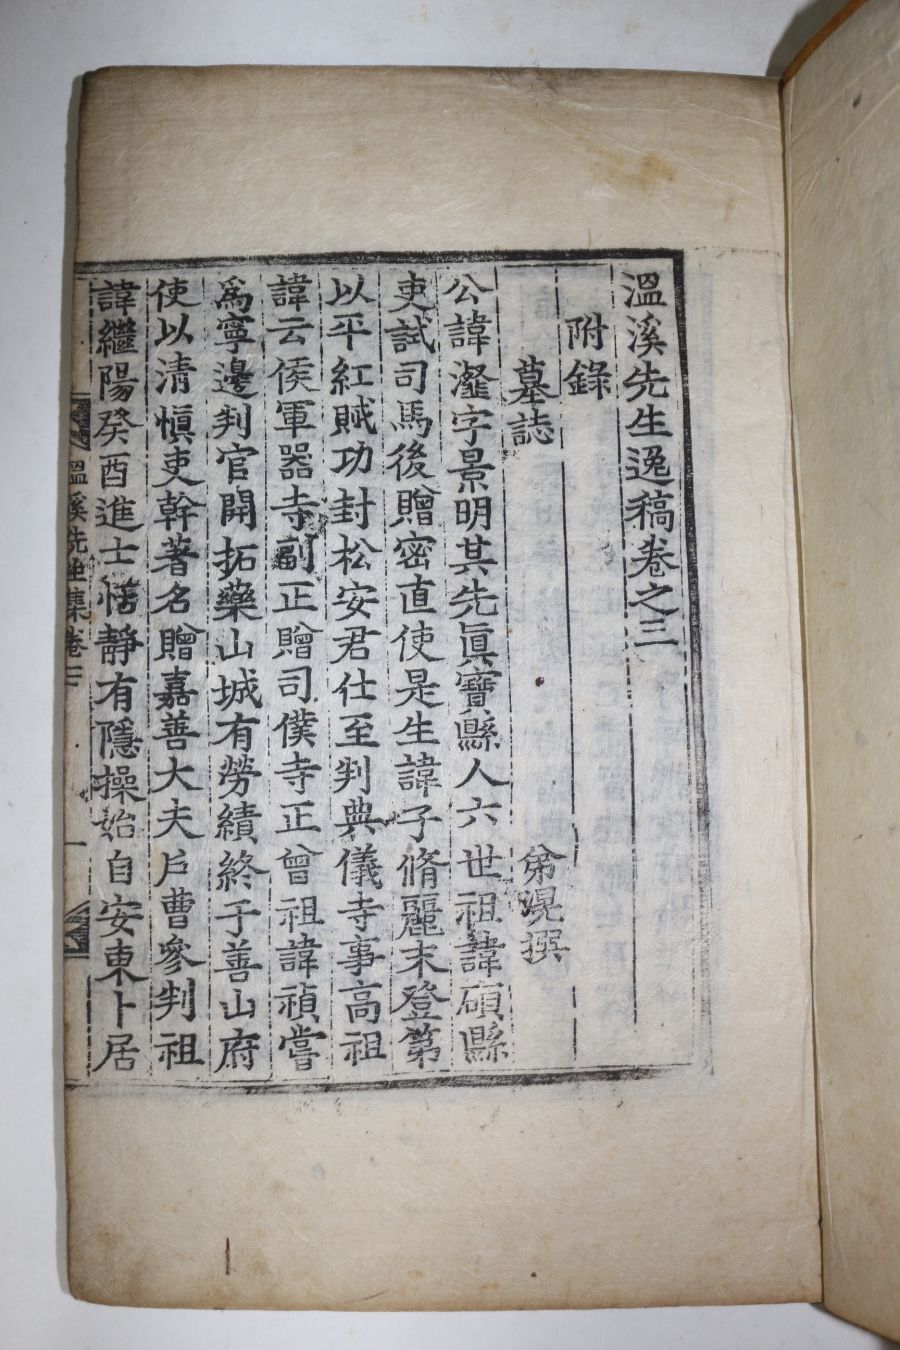 溫溪先生逸稿卷之三
附錄
墓誌
弟滉撰
公諱瀣字景明其先眞寶縣人六世祖諱碩縣
吏試司馬後贈密直使是生諱子脩麗末登第
以平紅賊功封松安君仕至判典儀寺事高祖
諱云侯軍器寺副正贈司僕寺正曾祖諱禎嘗
爲寧邊判官開拓藥山城有勞績終于善山府
使以淸愼吏幹著名贈嘉善大夫戶曹參判祖
諱繼陽癸酉進士恬靜有隱操始自安東卜居
溫溪先生集卷三
一